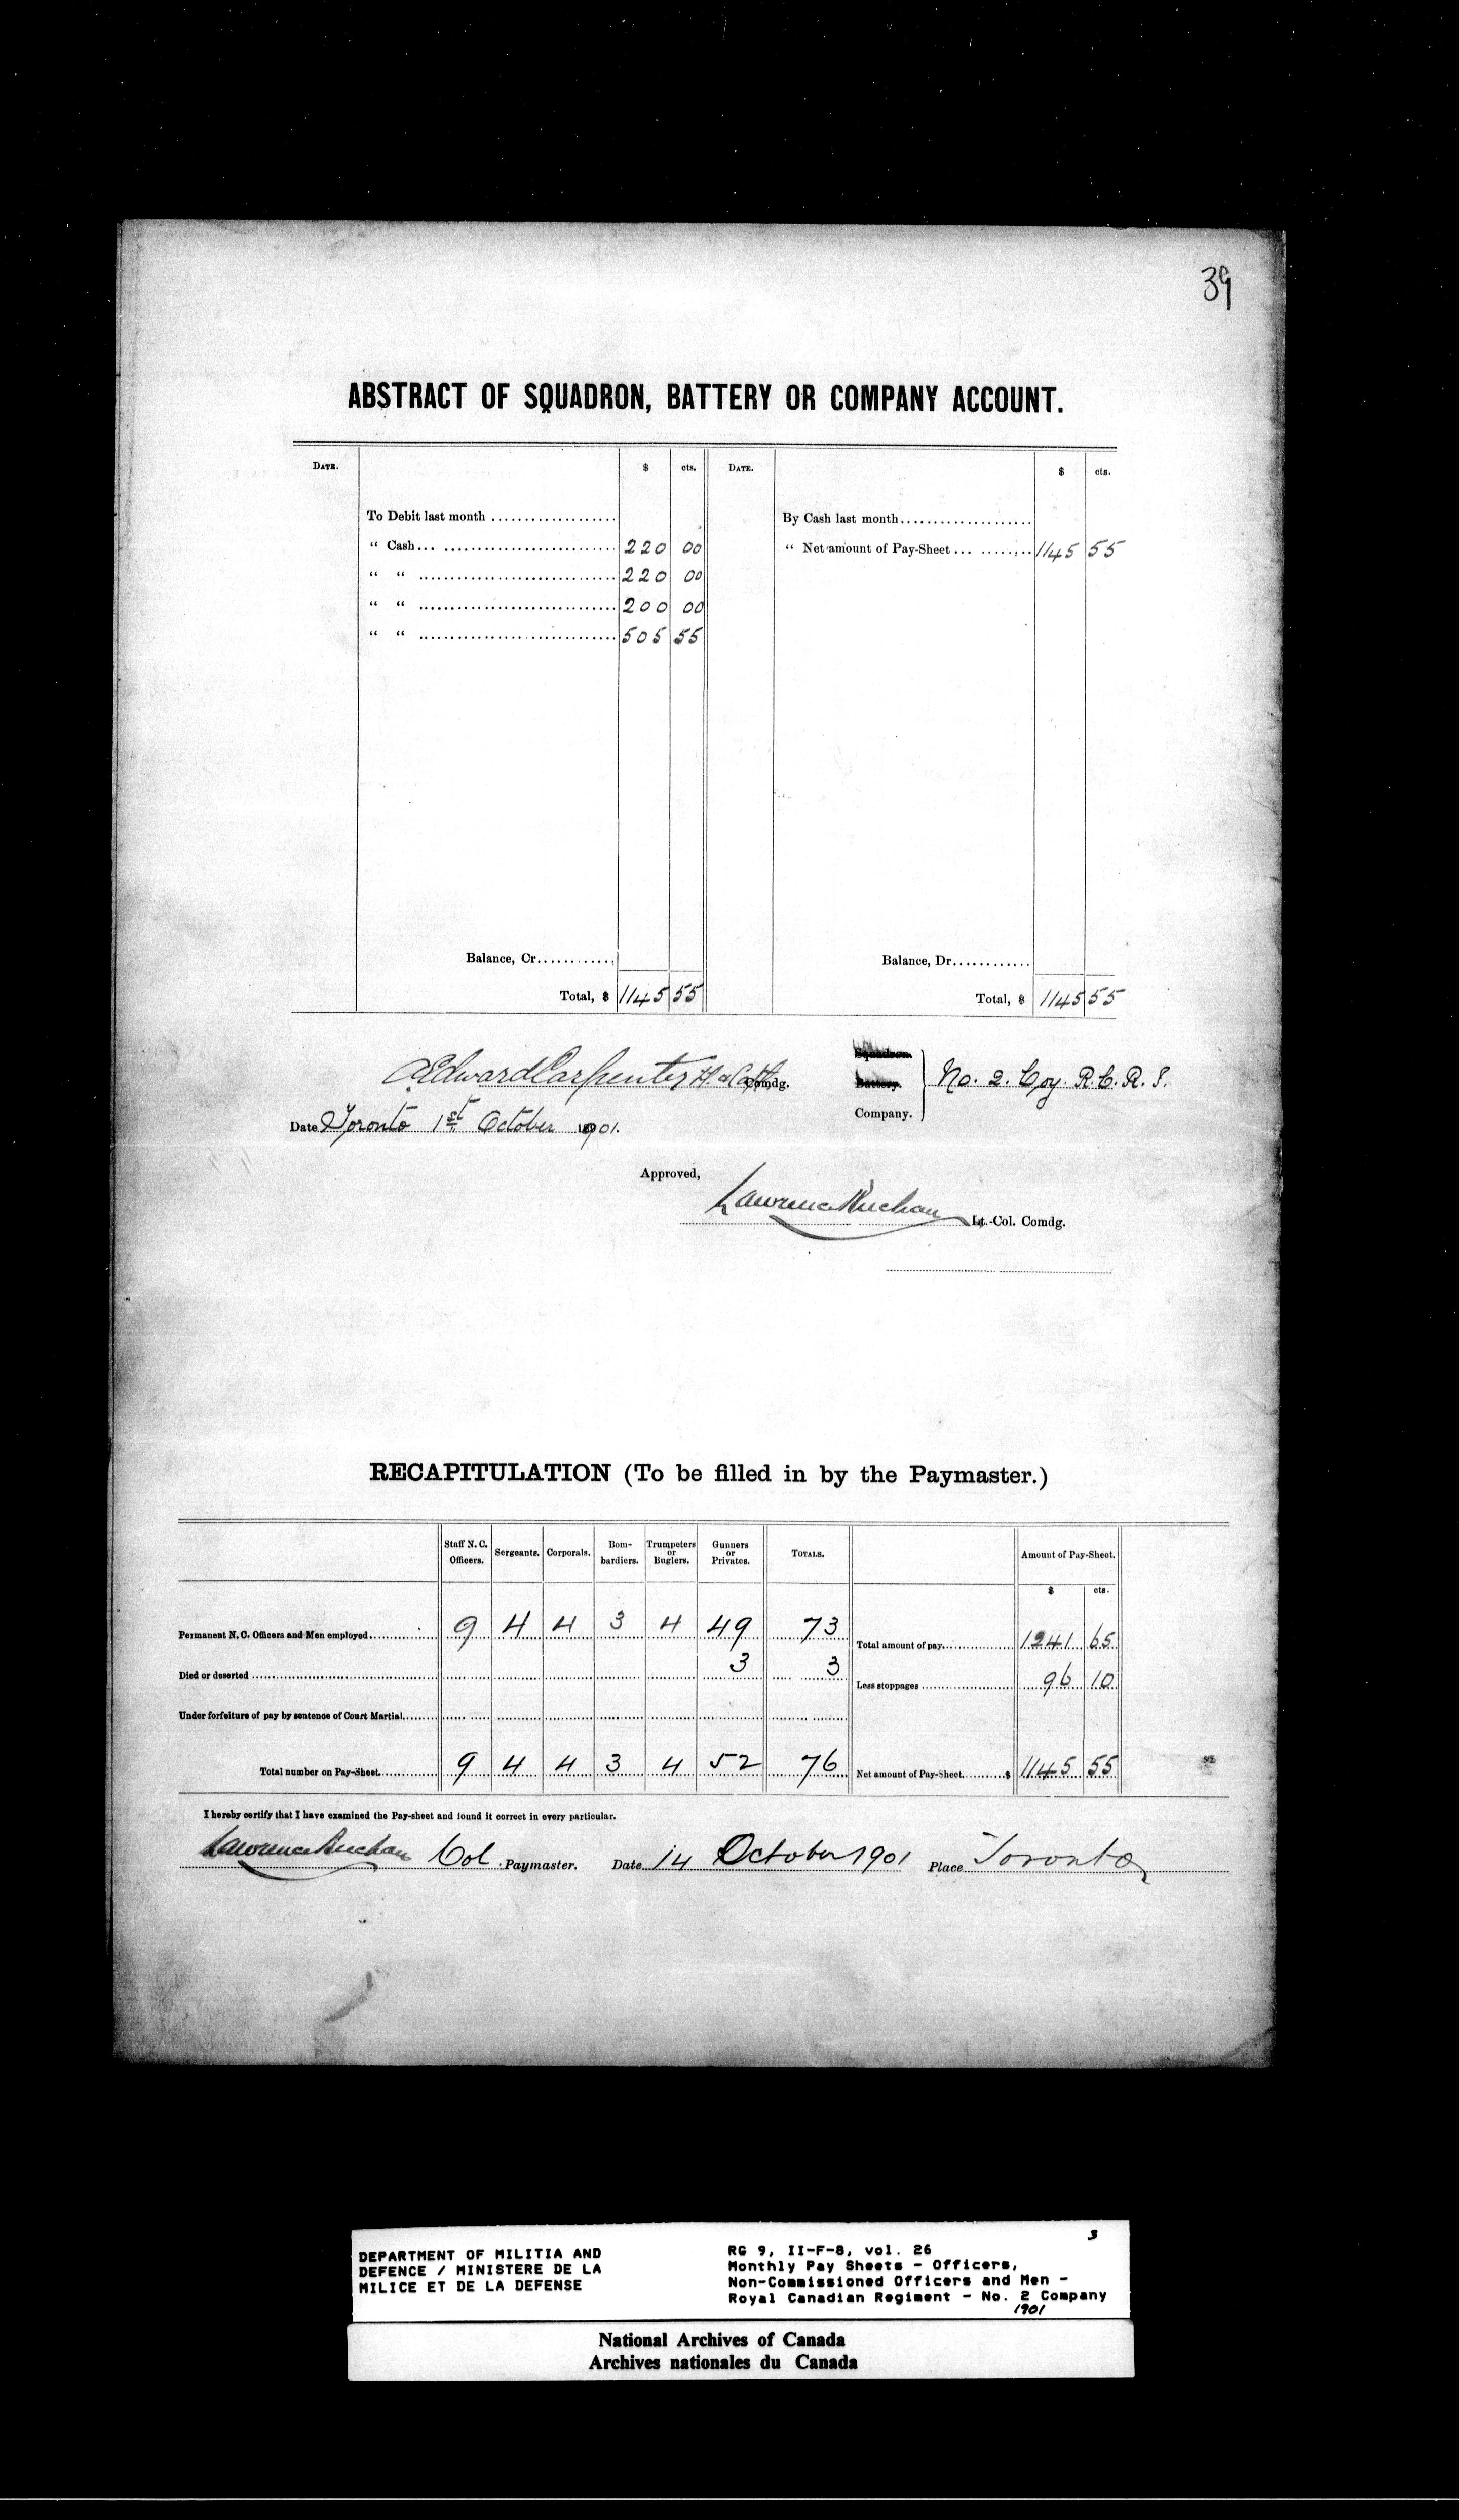 39
ABSTRACT OF SQUADRON, BATTERY OR COMPANY ACCOUNT.
DATE. $ cts. DATE. $ cts.
To Debit last month .................. By Cash last month....................
“ Cash... .......................... 220 00 “ Net amount of Pay-Sheet ... ........ 1145 55
“ “ .............................. 220 00
“ “ .............................. 200 00
“ “ .............................. 505 55
Balance, Cr............ Balance, Dr............
Total, $ 1145 55 Total, $ 1145 55
Edward Carpenter Comdg.
Squadron.
Battery.
Company.
No. 2. Coy. R.C.R. I.
Date Toronto 1st October 1901.
Approved,
Lawrence Buchan Lt.-Col. Comdg.
RECAPITULATION (To be filled in by the Paymaster.)
Staff N. C. Officers. Sergeants. Corporals. Bom-bardiers. Trumpeters or Buglers. Gunners or Privates. TOTALS. Amount of Pay-Sheet.
$ cts.
Permanent N. C. Officers and Men employed............ 9 4 4 3 4 49 73 Total amount of pay.................. 1241 65
Died or deserted ................................ 3 3 Less stoppages ...................... 96 10
Under forfeiture of pay by sentence of Court Martial........
Total number on Pay-Sheet.............. 9 4 4 3 4 52 76 Net amount of Pay-Sheet..........$ 1145 55
I hereby certify that I have examined the Pay-sheet and found it correct in every particular.
Lawrence Buchan Col. Paymaster. Date 14 October 1901 Place Toronto
3
DEPARTMENT OF MILITIA AND
DEFENCE / MINISTERE DE LA
MILICE ET DE LA DEFENSE
RG 9, II-F-8, vol. 26
Monthly Pay Sheets - Officers,
Non-Commissioned Officers and Men -
Royal Canadian Regiment - No. 2 Company
1901
National Archives of Canada
Archives nationales du Canada